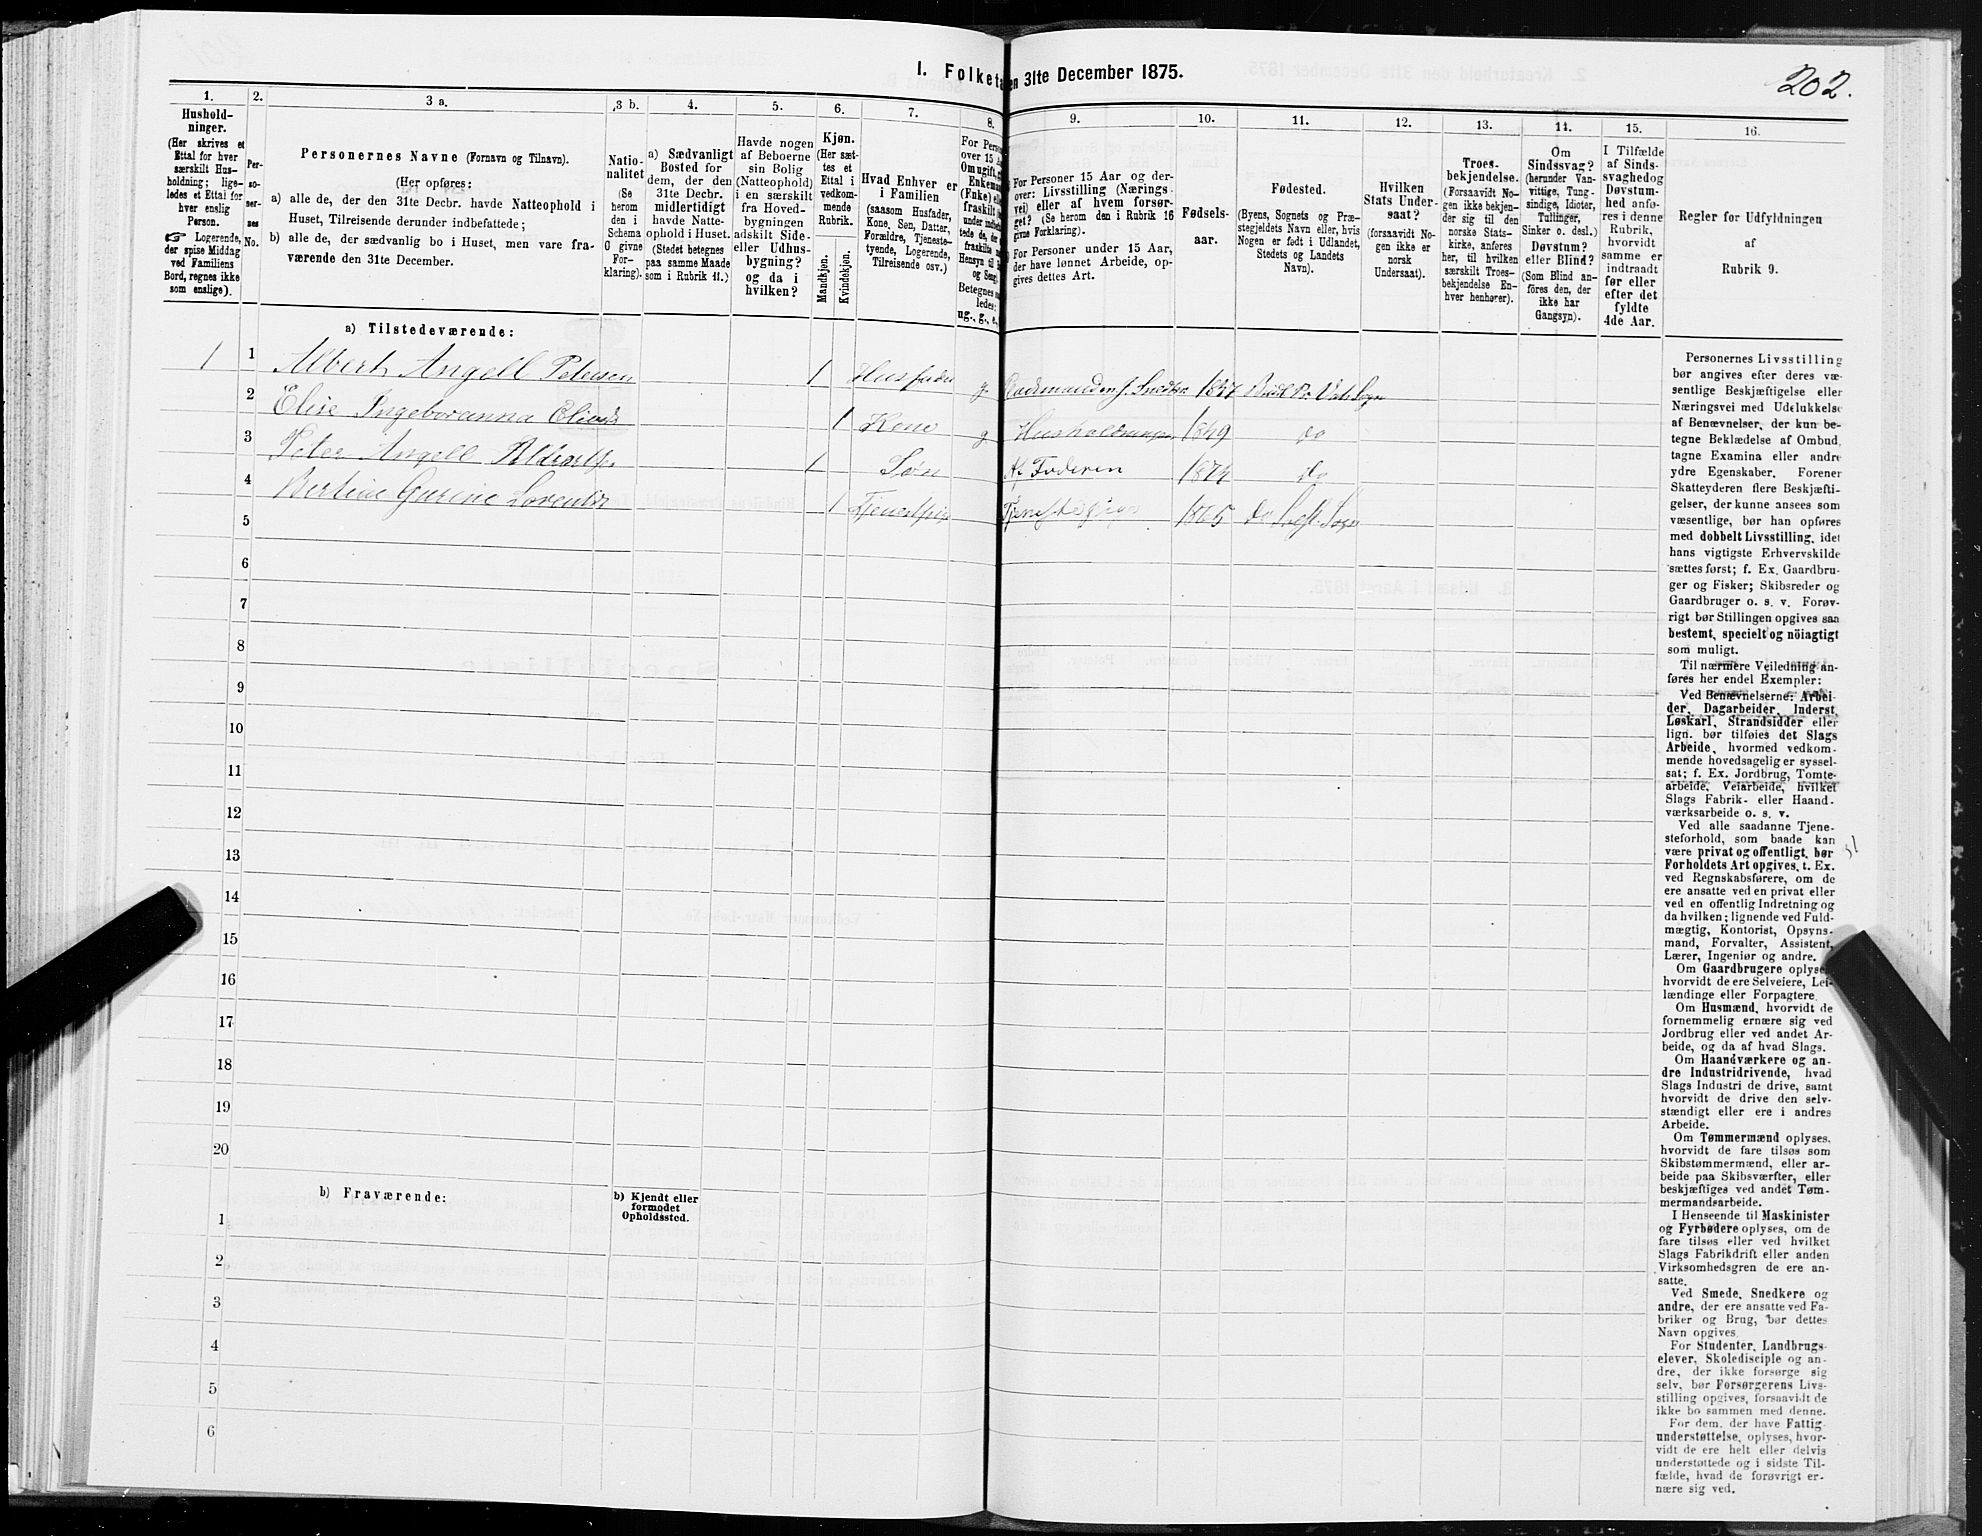 1. Folketa en 31te December 1875.
202.
1.
Hushold-
ninger.
(Her skrives et
Ettal for hver
særskilt Hus-
holdning; lige-
ledes et Ettal for
hver enslig
Person.
☞ Logerende,
der spise Middag
ved Familiens
Bord, regnes ikke
som enslige).
2.
Per-
so-
ner-
nes
No.
3 a.
Personernes Navne (Fornavn og Tilnavn).
(Her opføres:
a) alle de, der den 31te Decbr. havde Natteophold i
Huset, Tilreisende derunder indbefattede;
b) alle de, der sædvanlig bo i Huset, men vare fra-
værende den 31te December.
3 b.
Natio-
nalitet
(Se
herom
den i
Schema
C givne
For-
klaring).
4.
a) Sædvanligt
Bosted for
dem, der den
31te Decbr.
midlertidigt
havde Natte-
ophold i Huset.
(Stedet betegnes
paa samme Maade
som i Rubrik 11.)
5.
Havde nogen
af Beboerne
sin Bolig
(Natteophold)
i en særskilt
fra Hoved-
bygningen
adskilt Side-
eller Udhus-
bygning?
og da i
hvilken?
6.
Kjøn.
(Her sæt-
tes et
Ettal i
vedkom-
mende
Rubrik.
Mandkjøn.
Kvindekjøn.
7.
Hvad Enhver er
i Familien
(saasom Husfader,
Kone, Søn, Datter,
Forældre, Tjeneste-
tyende, Logerende,
Tilreisende osv.)
8.
For Perso
over 15 Aa
Om ugift, g
Enkema
(Enke) el
fraskilt
9.
For Personer 15 Aar og der-
over: Livsstilling (Nærings-
vei) eller af hvem forsør-
get? (Se herom den i Rubrik 16
givne Forklaring).
For Personer under 15 Aar,
der have lønnet Arbeide, op-
gives dettes Art.
10.
Fødsels-
aar.
11.
Fødested.
(Byens, Sognets og Præ-
stegjeldets Navn eller, hvis
Nogen er født i Udlandet,
Stedets og Landets
Navn).
12.
Hvilken
Stats Under-
saat?
(forsaavidt No-
gen ikke er
norsk
Undersaat).
13.
Troes-
bekjendelse.
(Forsaavidt No-
gen ikke bekjen-
der sig til den
norske Stats-
kirke, anføres
her, til hvilken
særskilt Troes-
bekjendelse En-
hver henhører).
14.
Om
Sindssvag?
(herunder Van-
vittige, Tung-
sindige, Idioter,
Tullinger,
Sinker o. desl.)
Døvstum?
eller Blind?
(Som Blind an-
föres den, der
ikke har
Gangsyn).
15.
I Tilfælde
af Sinds-
svaghed og
Døvstum-
hed anfø-
res i denne
Rubrik,
hvorvidt
samme er
indtraadt
før eller
efter det
fyldte
4de Aar.
16.
Regler for Udfyldningen
af
Rubrik 9.
a) Tilstedeværende:
1 1 Albert Angell Petersen 1 Husfader g 1847
2 Elise Ingeboranna 1 Kone g 1849 do
3 Peter Angell 1 Søn Af Faderen do
4 Bertine Gurine 1 1865 do Sogn
5
6
7
8
9
10
11
12
13
14
15
16
17
18
19
20
b) Fraværende:
b) Kjendt eller
formodet
Opholdssted.
1
2
3
4
5
6
Personernes Livsstilling
bør angives efter deres væ-
sentlige Beskjæftigelse eller
Næringsvei med Udelukkelse
af Benævnelser, der kun be-
tegne Beklædelse af Ombud,
tagne Examina eller andre
ydre Egenskaber. Forener
Skatteyderen flere Beskjæfti-
gelser, der kunne ansees som
væsentlige, bør han opføres
med dobbelt Livsstilling, idet
hans vigtigste Erhvervskilde
sættes først; f. Ex. Gaardbru-
ger og Fisker; Skibsreder og
Gaardbruger o. s. v. Forøv-
rigt bør Stillingen opgives saa
bestemt, specielt og nöiagtigt
som muligt.
Til nærmere Veiledning an-
føres her endel Exempler:
Ved Benævnelserne: Arbei-
der, Dagarbeider, Inderst,
Løskarl, Strandsidder eller
lign. bør tilføies det Slags
Arbeide, hvormed vedkom-
mende hovedsagelig er syssel-
sat; f. Ex. Jordbrug, Tomte-
arbeide, Veiarbeide, hvilket
Slags Fabrik- eller Haand-
værksarbeide o. s. v.
Ved alle saadanne Tjene-
steforhold, som baade kan
være privat og offentligt, bør
Forholdets Art opgives, t. Ex.
ved Regnskabsførere, om de
ere ansatte ved en privat eller
ved en offentlig Indretning og
da hvilken; lignende ved Fuld-
mægtig, Kontorist, Opsyns-
mand, Forvalter, Assistent,
Lærer, Ingeniør og andre.
Om Gaardbrugere oplyses,
hvorvidt de ere Selveiere, Lei-
lændinge eller Forpagtere.
Om Husmænd, hvorvidt de
fornemmelig ernære sig ved
Jordbrug eller ved andet Ar-
beide, og da af hvad Slags.
Om Haandværkere og an-
dre Industridrivende, hvad
Slags Industri de drive, samt
hvorvidt de drive den selv-
stændigt eller ere i andres
Arbeide.
Om Tømmermænd oplyses,
hvorvidt de fare tilsøs som
Skibstømmermænd, eller ar-
beide paa Skibsværfter, eller
beskjæftiges ved andet Tøm-
mermandsarbeide.
I Henseende til Maskinister
og Fyrbødere oplyses, om de
fare tilsøs eller ved hvilket
Slags Fabrikdrift eller anden
Virksomhedsgren de ere an-
satte.
Ved Smede, Snedkere og
andre, der ere ansatte ved Fa-
briker og Brug, bør dettes
Navn opgives.
For Studenter, Landbrugs-
elever, Skoledisciple og an-
dre, der ikke forsørge sig
selv, bør Forsørgerens Livs-
stilling opgives, forsaavidt de
ikke bo sammen med denne.
For dem, der have Fattig-
understøttelse, oplyses, hvor-
vidt de ere helt eller delvis
understøttede og i sidste Til-
fælde, hvad de forøvrigt er-
nære sig ved.